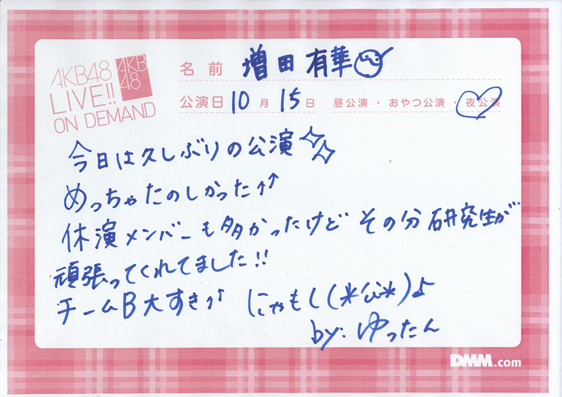 AKB48
LIVE!!
ON DEMAND
AKB
48
名前 増田 有華
公演日 10月 15日 昼公演・おやつ公演・夜公演
今日は久しぶりの公演
めっちゃたのしかった↑↑
休演メンバーも多かったけど その分 研究生が
頑張ってくれてました!!
チームB大すき↑↑ にゃもし(*'ω'*)♪
by. ゆったん
DMM.com